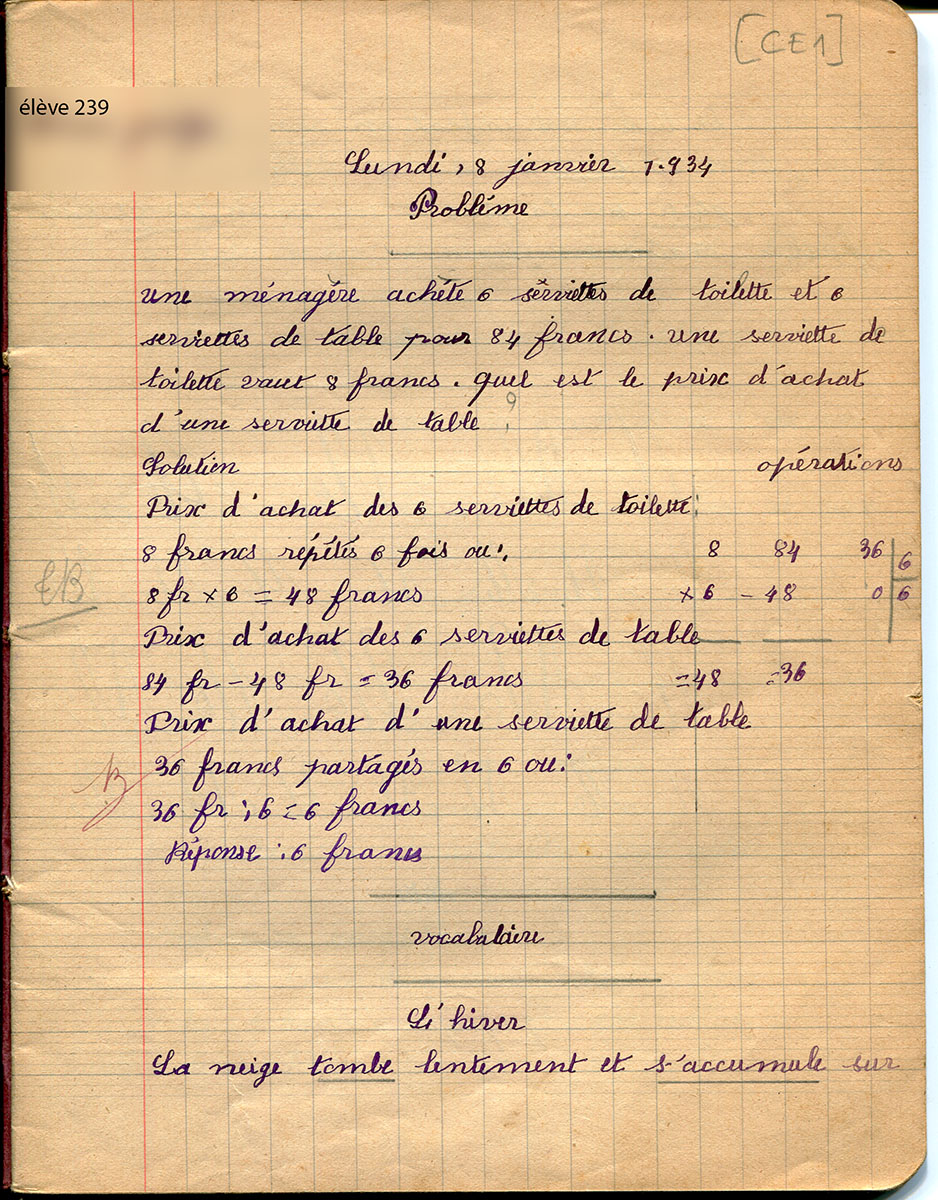 [CE1]
élève 239
Lundi, 8 janvier 1.934
Problème
une ménagère achète 6 serviettes de toilette et 6
serviettes de table pour 84 francs. une serviette de
toilette vaut 8 francs. quel est le prix d'achat
d'une serviette de table ?
Solution opérations
Prix d'achat des 6 serviettes de toilette:
8 francs répétés 6 fois ou: 8 84 36 6
TB
8 fr × 6 = 48 francs × 6 - 48 0 6
Prix d'achat des 6 serviettes de table
84 fr - 48 fr = 36 francs =48 =36
Prix d'achat d'une serviette de table
B
36 francs partagés en 6 ou:
36 fr : 6 = 6 francs
Réponse : 6 francs
vocabulaire
L'hiver
La neige tombe lentement et s'accumule sur